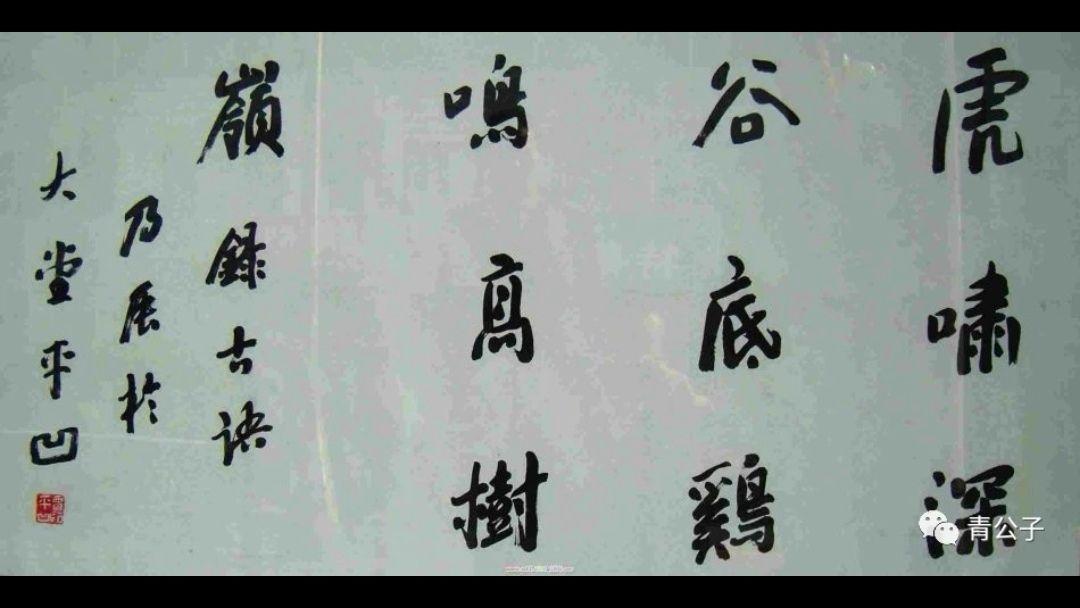 虎嘯深
谷底鷄
鳴高樹
嶺 錄古語
乃於
大堂平凹
青公子